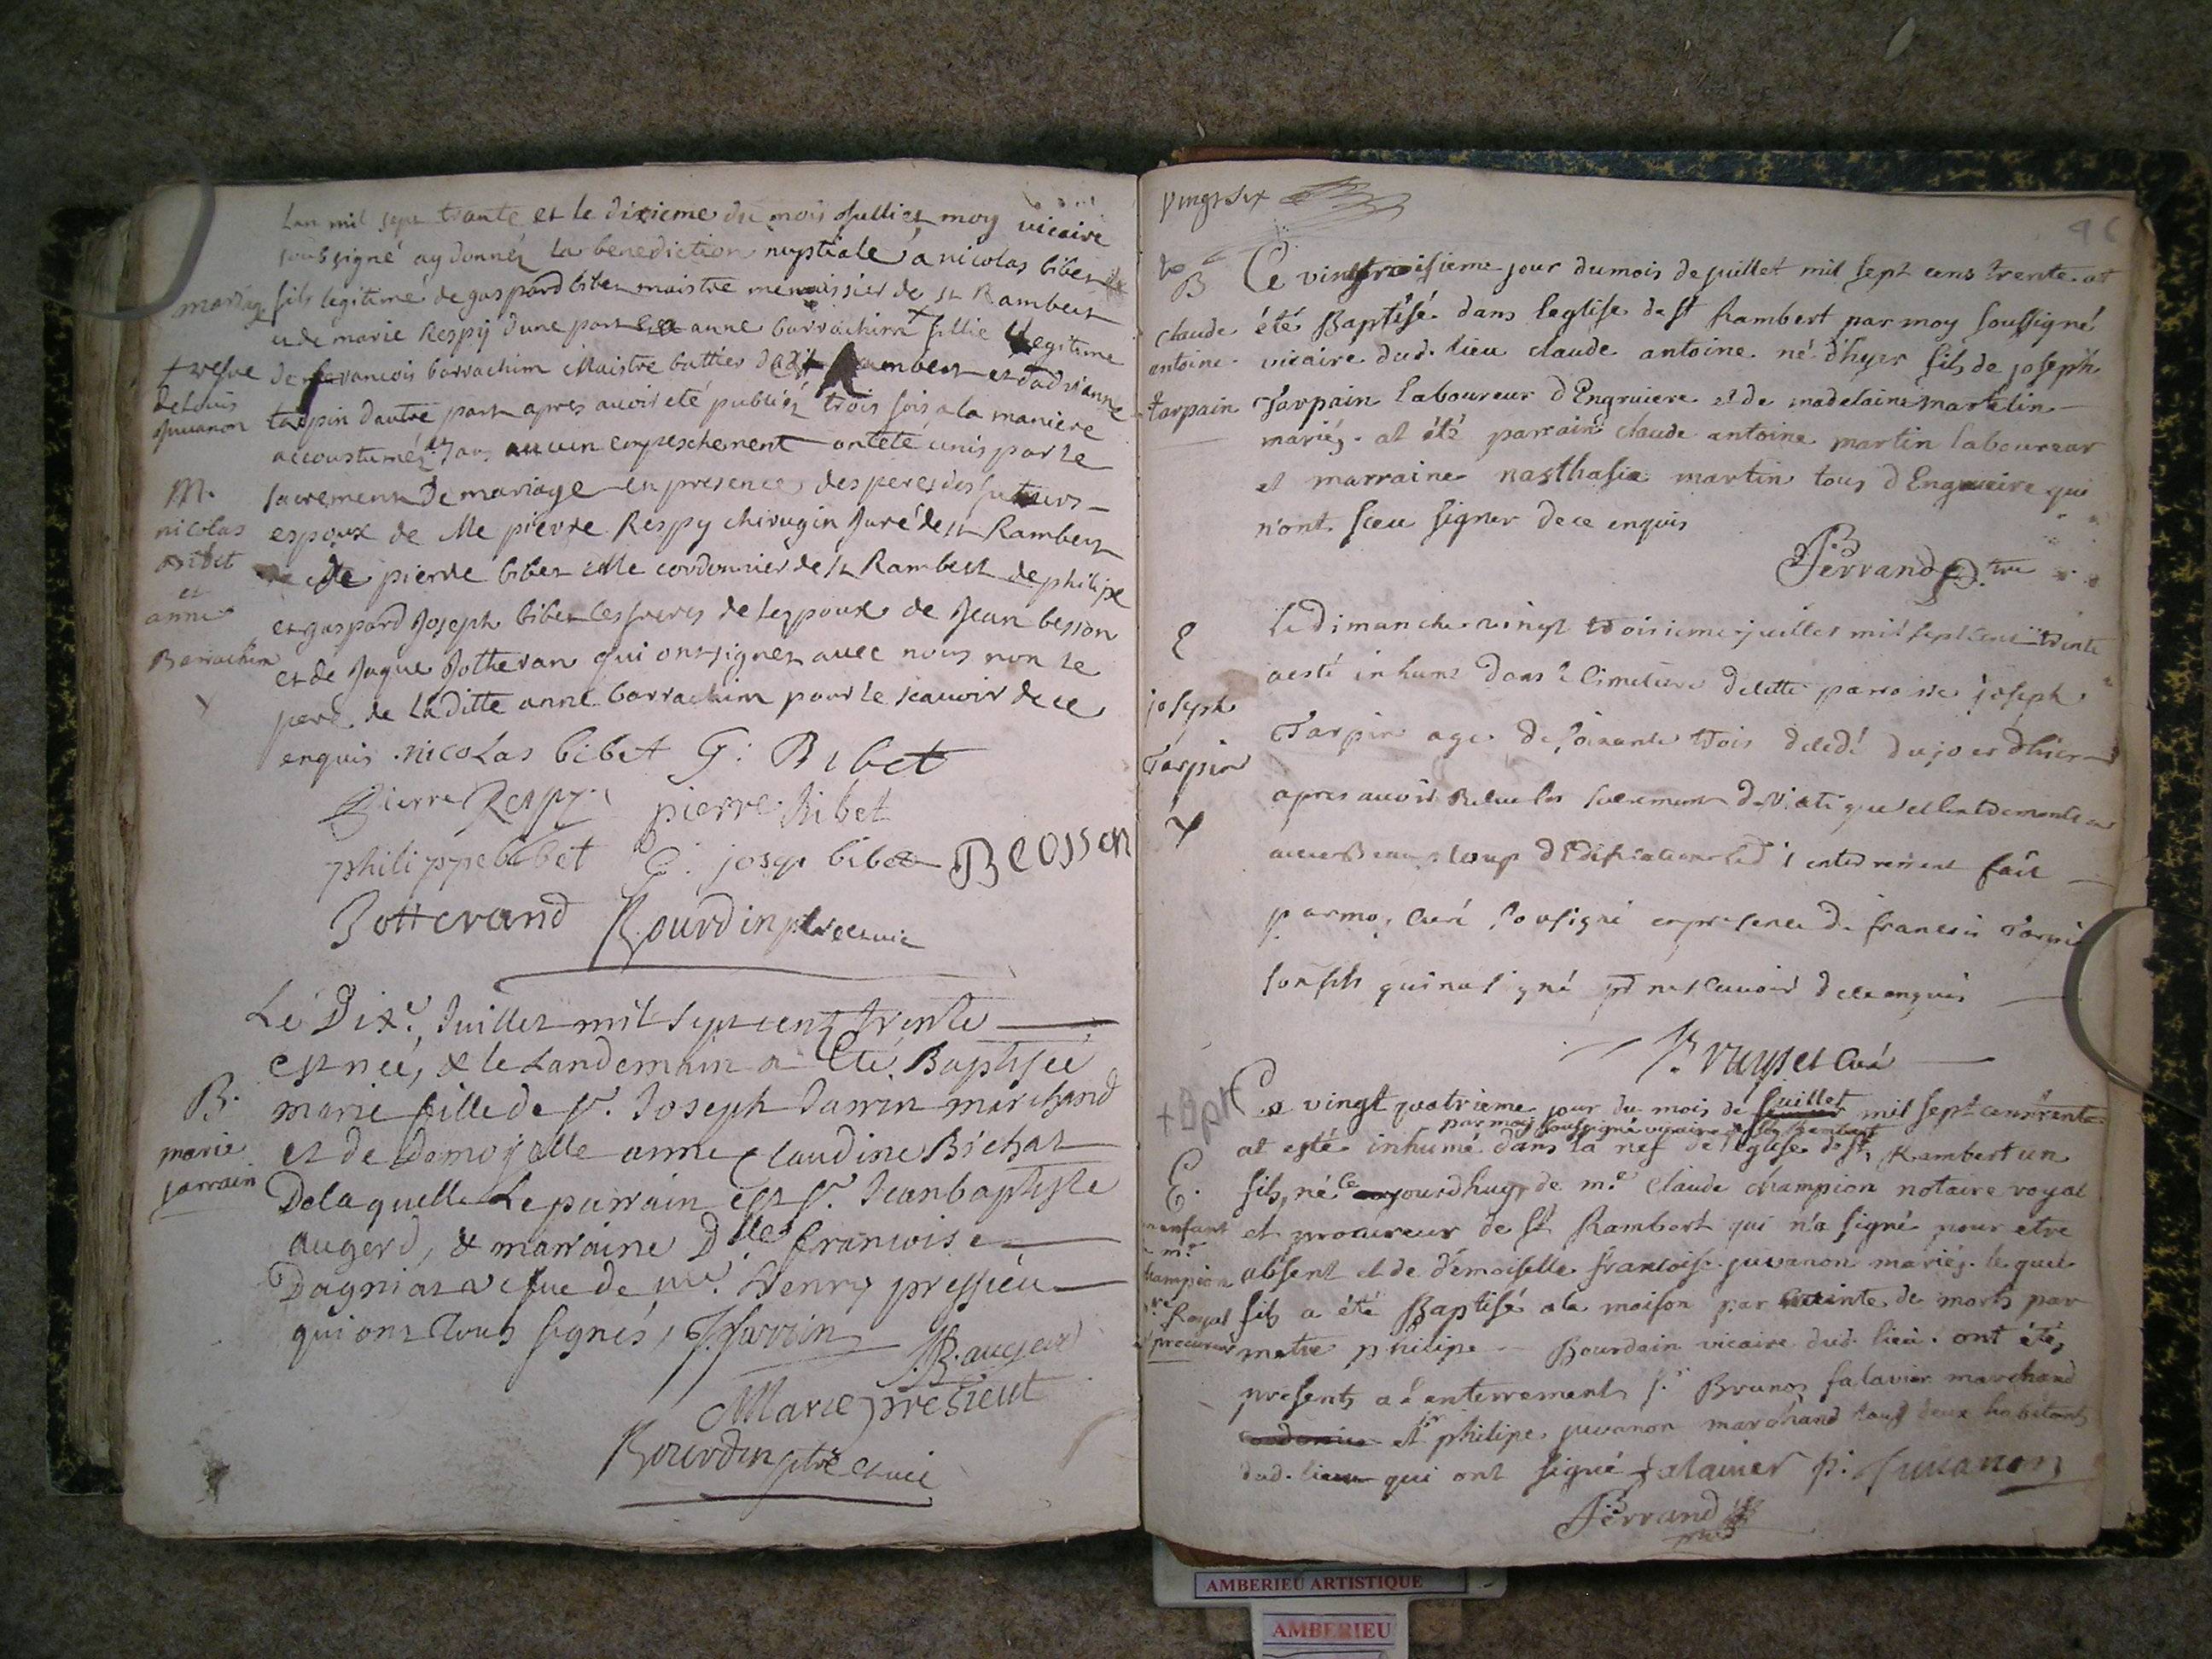 Lan mil sept trante et le dixieme du mois Julliet moy vicaire
soubsigné ay donnéz la benediction nuptiale a nicolas bibet
mariage
fils legitime de gaspard bibet maistre menuissier de st Rambert
et de marie Respy dune part et anne barrachim + fillie legitime
+ vefue de Louis Juuanon
de francois barrachim Maistre battier dudit Rambert et dadrianne
tarpin dautre part apres auoir eté publiéz trois fois a la maniere
accoustuméz sans aucun empeschement ont eté unis par le
M.
nicolas
Bibet
et
anne
Barrachim
sacrement de mariage en presence des peres des futurs
espoux de Me pierre Respy chirugin Juré de st Rambert
de pierre bibet Me cordonnier de st Rambert de philipe
et gaspard Joseph bibet les freres de lespoux de Jean besson
et de Jaque Jotteran qui ont signez auec nous non le
pere de laditte anne barrachim pour le scauoir de ce
enquis nicolas bibet G. Bibet
Pierre Respy pierre bibet
philippe bibet G. josep bibet Beosson
Jotterand Bourdin ptre et vic
Le Dix.e Juillet mil sept cent trente
est née, & le Landemain a Eté Baptisée
B.
marie
jarrain
marie fille de sr. Joseph Jarrin marchand
et de demoyselle anne Claudine Bichat
De laquelle Le parrain est sr. Jean baptiste
augerd, & marraine Dlle francoise
Dagniat vefue de mr. Henry pressieu
qui ont tous signés, J. Jarrin
J.B. augerd
Marie presieut
Bourdin ptre et vic
vingt six
46
B
claude
antoine
tarpain
Ce vingtroisieme jour du mois de juillet mil sept cens trente at
été Baptisé dans leglise de st Rambert par moy soussigné
vicaire dud. lieu claude antoine né d'hyer fils de joseph
Tarpain laboureur d'Engruiere et de madelaine martelin
mariés. at été parrain claude antoine martin laboureur
et marraine nasthasia martin tous d'Engruieire qui
n'ont sceu signer de ce enquis
Ferrand p.tre
E
joseph
Tarpin
Le Dimanche vingt troisieme juillet mil sept cens trente
a esté inhumé dans le Cimetiere de cette paroisse joseph
Tarpin age de soixante trois decedé du jour d'hier
apres auoir Receu les sacrements
auec Beaucoup d'Edification led't enterrement fait
par moy Curé sousigné en presence de francois Tarpin
son fils qui na signé pr ne scauoir de ce enquis
Bruyset Curé
+ Bpt
Ce vingt quatrieme jour du mois de juillet mil sept cens trente
par moy soussigné vicaire de st Rambert
at esté inhumé dans la nef de l'eglise de st Rambert un
E.
enfant
mr.
hampion
Royal
procureur
fils, né ce jourdhuy de m.e claude champion notaire royal
et procureur de st Rambert qui n'a signé pour etre
absent et de demoiselle francoise juvanon mariés. le quel
fils a été Baptisé a la maison par crainte de morts par
metre philipe Bourdain vicaire dud. lieu. ont été
presents a l'enterrement s.r Brunos falavier marchand
et sr philipe juvanon marchand tous deux habitants
dud. lieu qui ont signé falavier p. Juuanon
Ferrand
AMBERIEU ARTISTIQUE
AMBERIEU